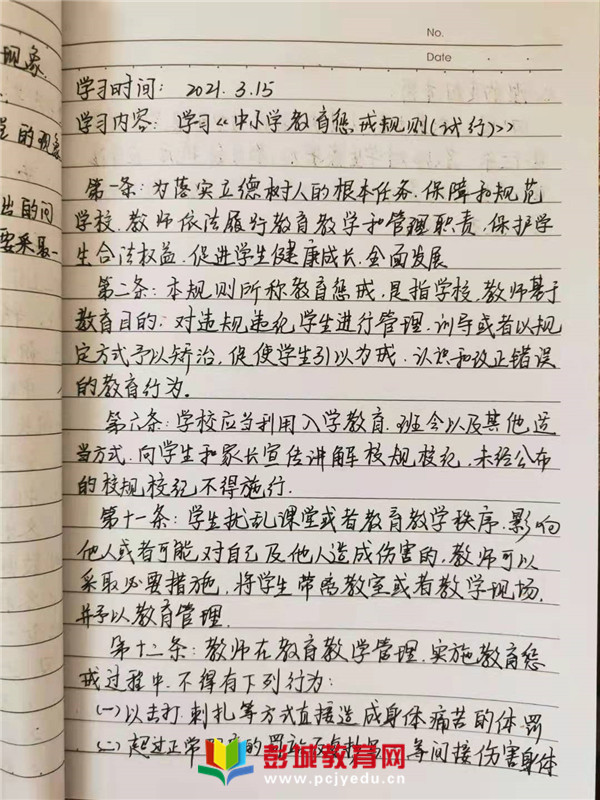 现象
No.
Date
学习时间: 2021.3.15
的现象
学习内容: 学习《中小学教育惩戒规则(试行)》
出的问
要采取
第一条:为落实立德树人的根本任务.保障和规范
学校.教师依法履行教育教学和管理职责,保护学
生合法权益.促进学生健康成长.全面发展
第二条:本规则所称教育惩戒,是指学校、教师基于
教育目的;对违规违纪学生进行管理、训导或者以规
定方式予以矫治,促使学生引以为戒、认识和改正错误
的教育行为。
第六条:学校应当利用入学教育、班会以及其他适
当方式.向学生和家长宣传讲解校规校纪,未经公布
的校规校纪不得施行.
第十一条:学生扰乱课堂或者教育教学秩序.影响
他人或者可能对自己及他人造成伤害的,教师可以
采取必要措施,将学生带离教室或者教学现场,
并予以教育管理.
第十二条:教师在教育教学管理.实施教育惩
戒过程中.不得有下列行为:
(一)以击打.刺扎等方式直接造成身体痛苦的体罚
(二)超过正常的罚站 等间接伤害身体
彭城教育网
www.pcjyedu.cn